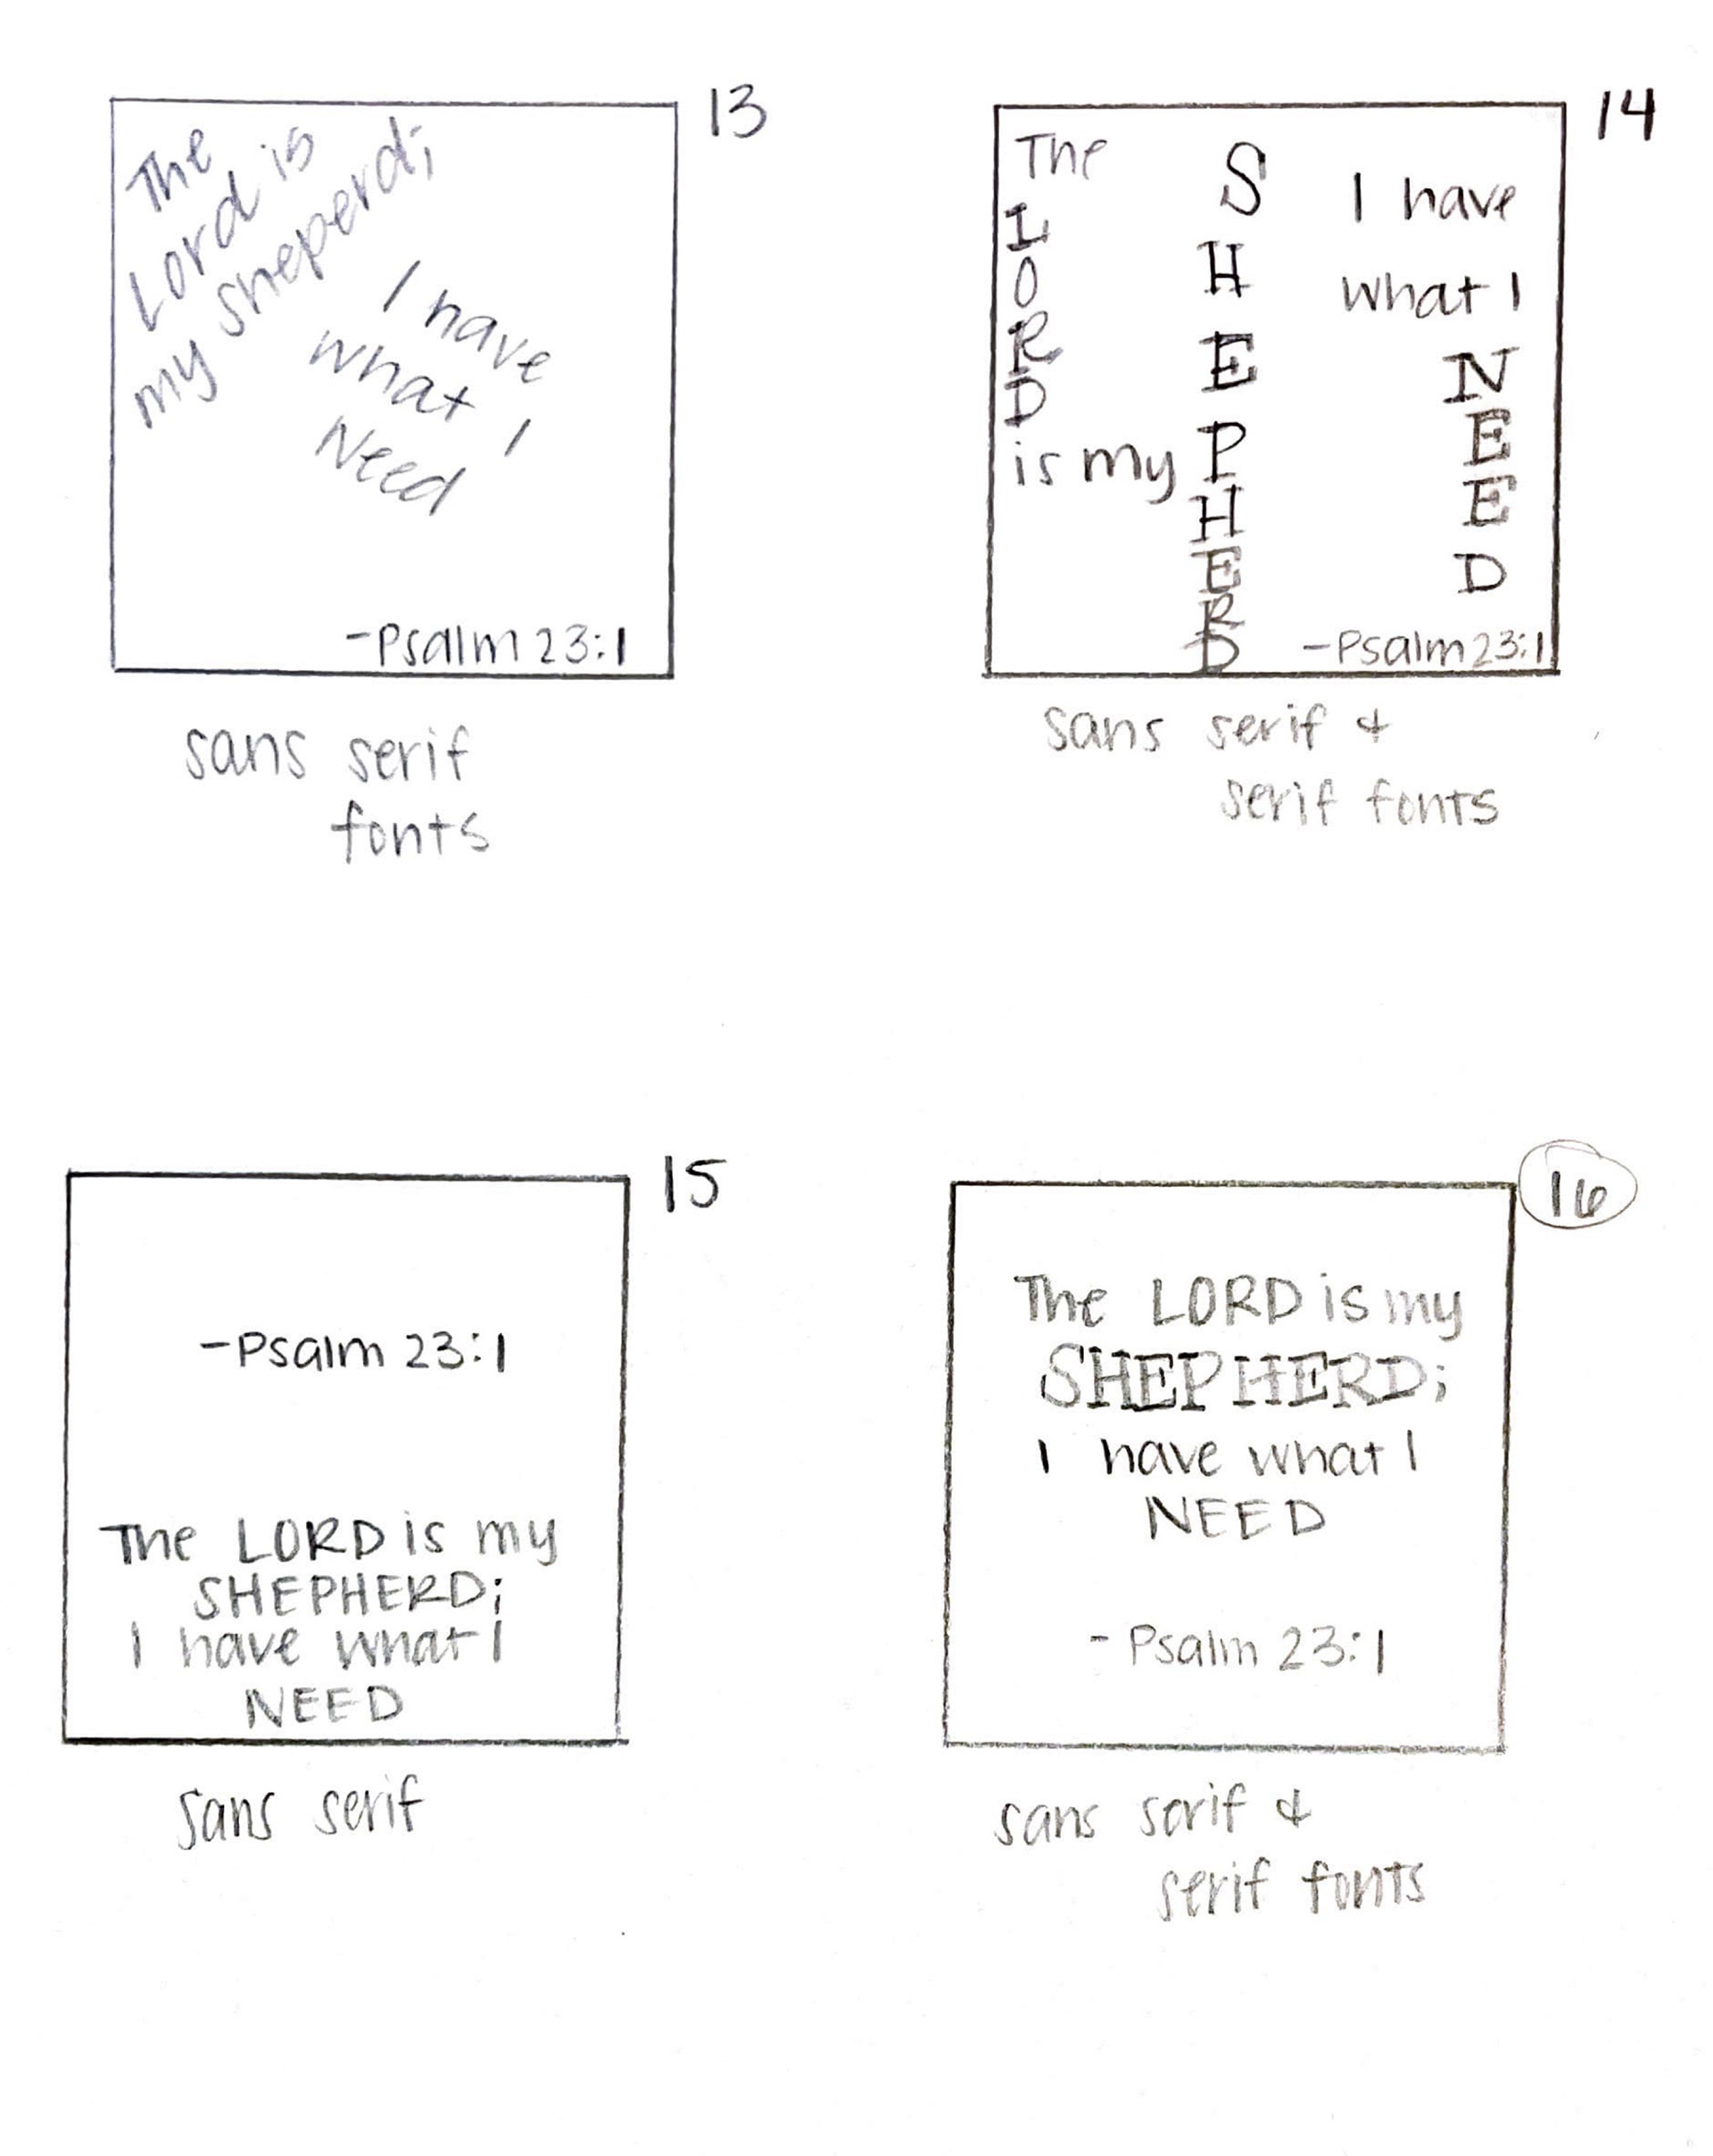 13
The
Lord is
my sheperd;
I have
what I
Need
-Psalm 23:1
sans serif
fonts
14
The
L
O
R
D
is my
S
H
E
P
H
E
R
D
I have
what I
N
E
E
D
-Psalm 23:1
sans serif &
serif fonts
15
-Psalm 23:1
The LORD is my
SHEPHERD;
I have what I
NEED
sans serif
16
The LORD is my
SHEPHERD;
I have what I
NEED
- Psalm 23:1
sans serif &
serif fonts